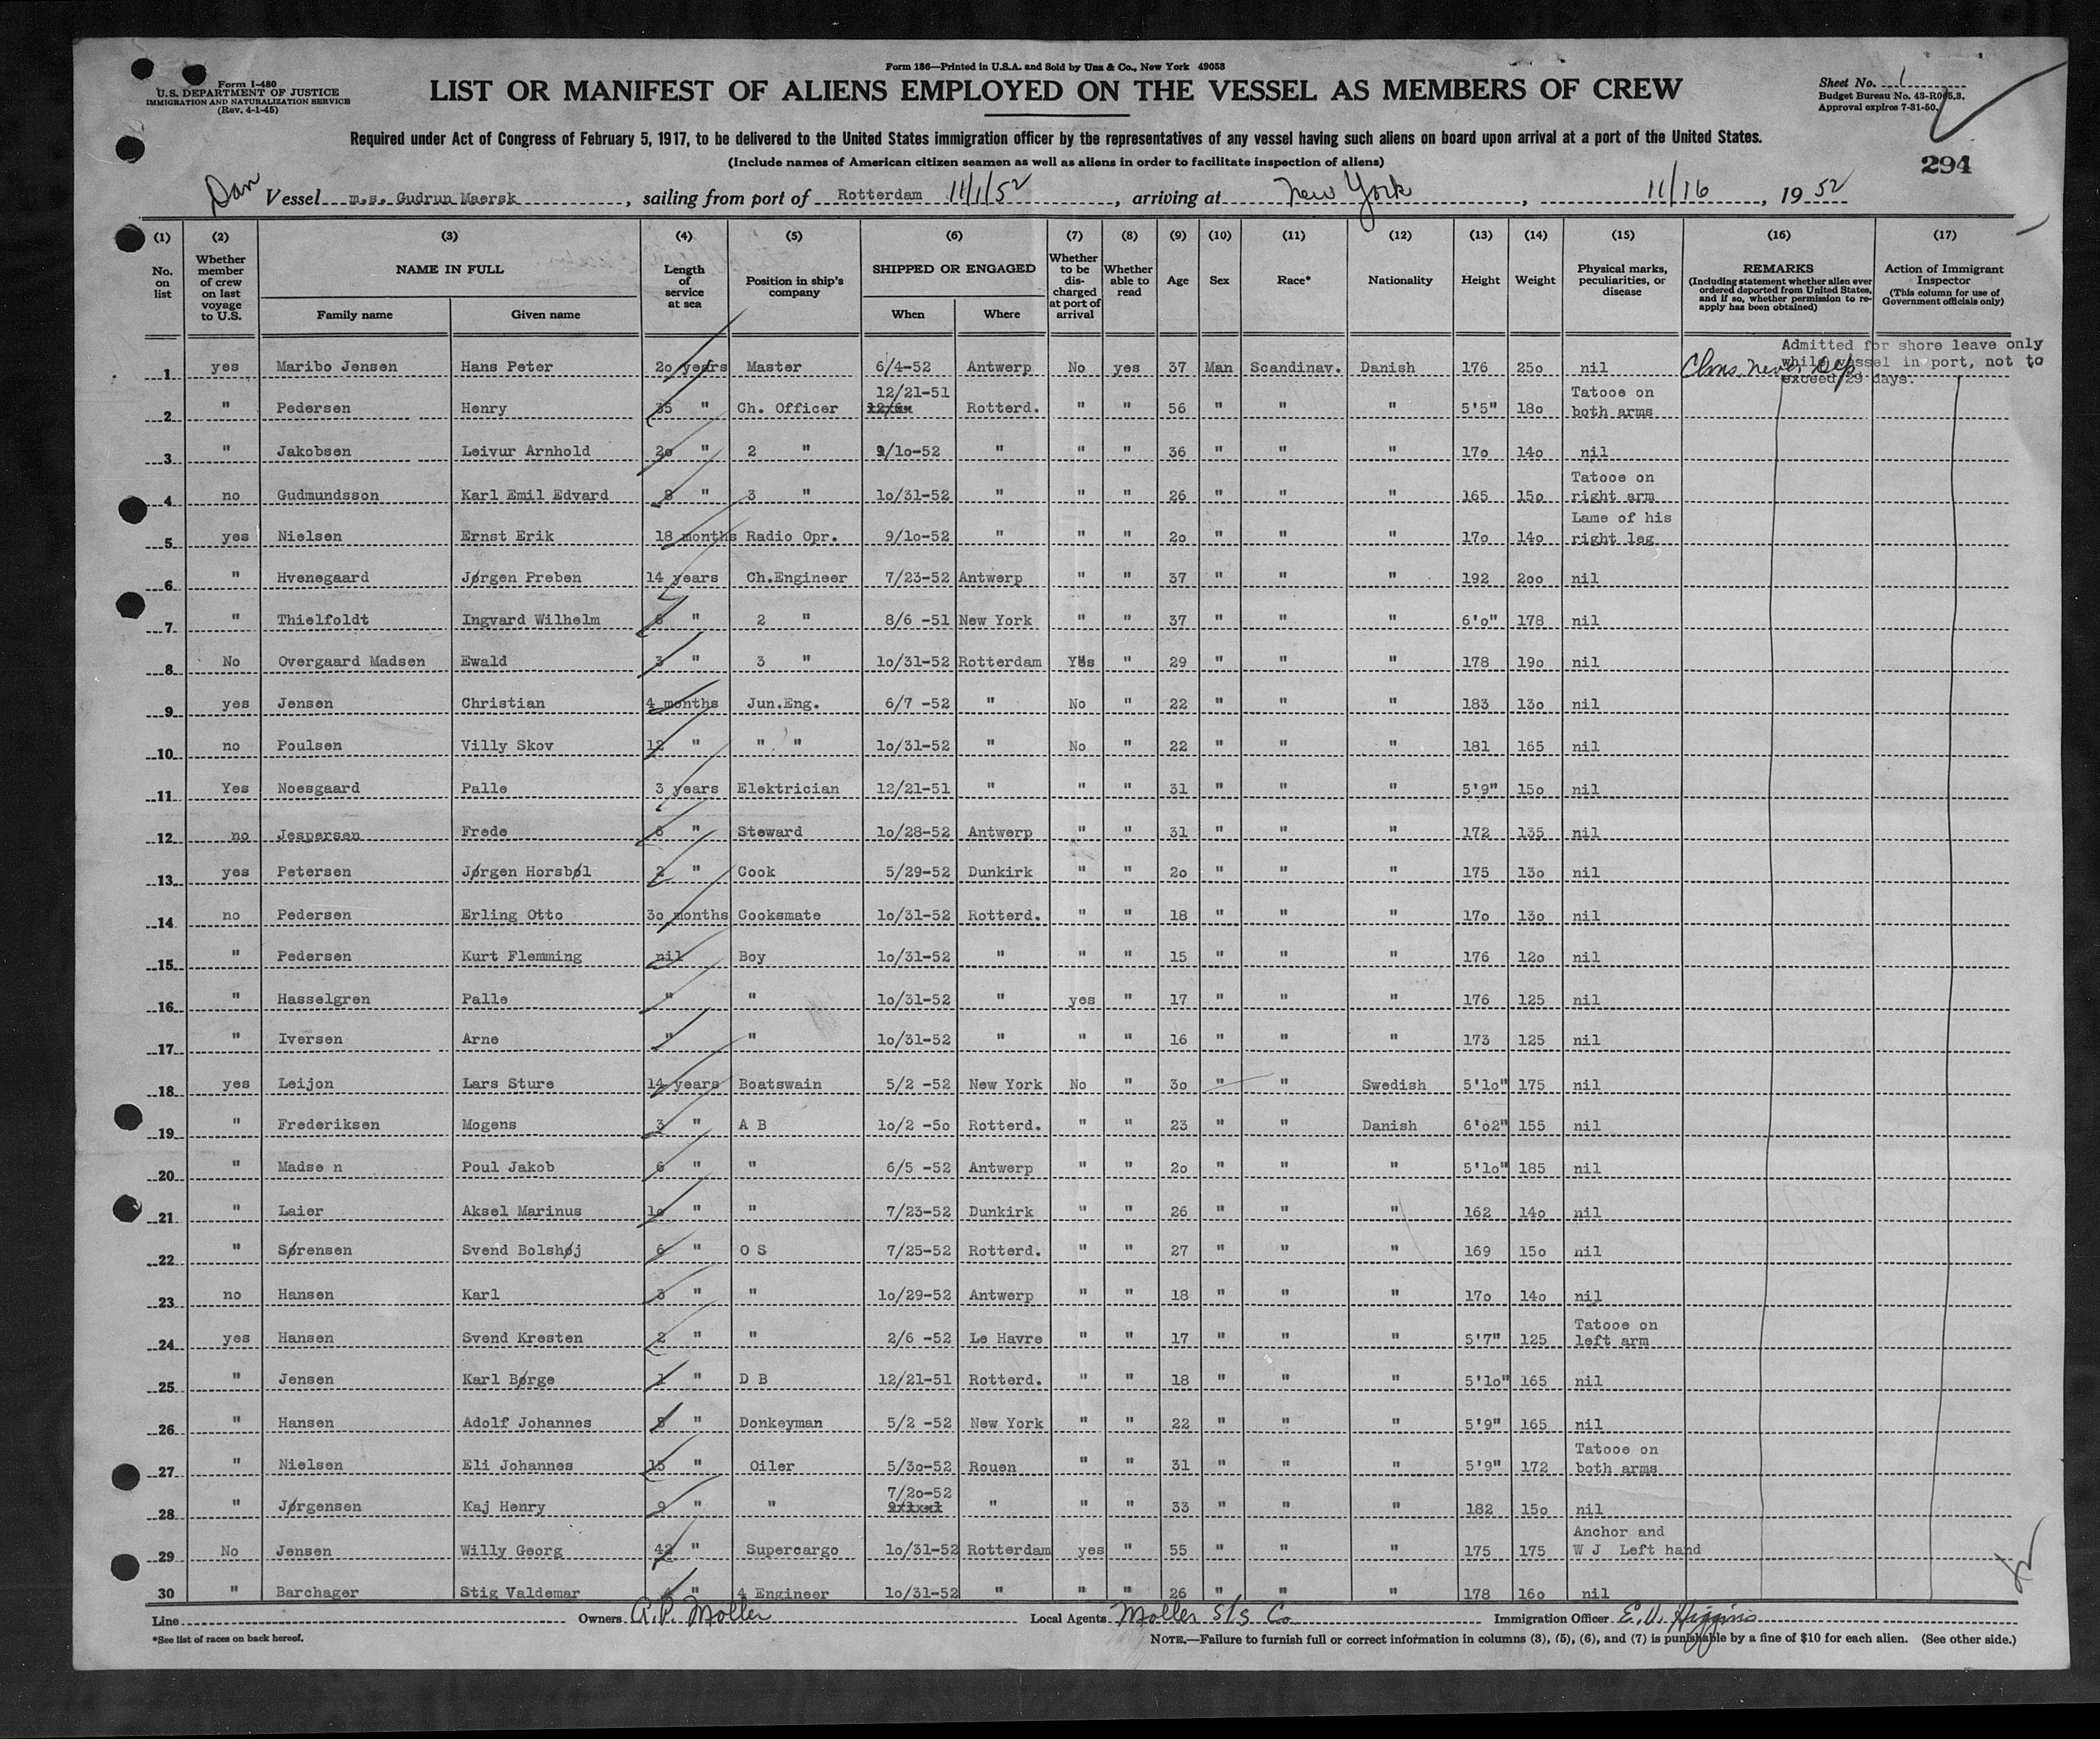 Form I-480
U.S. DEPARTMENT OF JUSTICE
IMMIGRATION AND NATURALIZATION SERVICE
(Rev. 4-1-45)
Form 186—Printed in U.S.A. and Sold by Unz & Co., New York 49053
LIST OR MANIFEST OF ALIENS EMPLOYED ON THE VESSEL AS MEMBERS OF CREW
Sheet No. 1
Budget Bureau No. 43-R065.3.
Approval expires 7-31-50.
Required under Act of Congress of February 5, 1917, to be delivered to the United States immigration officer by the representatives of any vessel having such aliens on board upon arrival at a port of the United States.
(Include names of American citizen seamen as well as aliens in order to facilitate inspection of aliens)
294
Dan Vessel m.s. Gudrun Maersk, sailing from port of Rotterdam 11/1/52, arriving at New York, 11/16, 1952
(1) (2) (3) (4) (5) (6) (7) (8) (9) (10) (11) (12) (13) (14) (15) (16) (17)
No. on list | Whether member of crew on last voyage to U.S. | NAME IN FULL Family name Given name | Length of service at sea | Position in ship's company | SHIPPED OR ENGAGED When Where | Whether to be discharged at port of arrival | Whether able to read | Age | Sex | Race* | Nationality | Height | Weight | Physical marks, peculiarities, or disease | REMARKS (Including statement whether alien ever ordered deported from United States, and if so, whether permission to re-apply has been obtained) | Action of Immigrant Inspector (This column for use of Government officials only)
Admitted for shore leave only while vessel in port, not to exceed 29 days.
1 yes Maribo Jensen Hans Peter 2o years Master 6/4-52 Antwerp No yes 37 Man Scandinav. Danish 176 25o nil Clms. never dep
2 " Pedersen Henry 35 " Ch. Officer 12/21-51 Rotterd. " " 56 " " " 5'5" 18o Tatooe on both arms
3 " Jakobsen Leivur Arnhold 2o " 2 " 9/1o-52 " " " 36 " " " 17o 14o nil
4 no Gudmundsson Karl Emil Edvard 8 " 3 " 1o/31-52 " " " 26 " " " 165 15o Tatooe on right arm
5 yes Nielsen Ernst Erik 18 months Radio Opr. 9/1o-52 " " " 2o " " " 17o 14o Lame of his right leg
6 " Hvenegaard Jørgen Preben 14 years Ch.Engineer 7/23-52 Antwerp " " 37 " " " 192 2oo nil
7 " Thielfoldt Ingvard Wilhelm 6 " 2 " 8/6 -51 New York " " 37 " " " 6'o" 178 nil
8 No Overgaard Madsen Ewald 3 " 3 " 1o/31-52 Rotterdam Yes " 29 " " " 178 19o nil
9 yes Jensen Christian 4 months Jun.Eng. 6/7 -52 " No " 22 " " " 183 13o nil
10 no Poulsen Villy Skov 12 " " " 1o/31-52 " No " 22 " " " 181 165 nil
11 Yes Noesgaard Palle 3 years Elektrician 12/21-51 " " " 31 " " " 5'9" 15o nil
12 no Jespersen Frede 6 " Steward 1o/28-52 Antwerp " " 31 " " " 172 135 nil
13 yes Petersen Jørgen Horsbøl 2 " Cook 5/29-52 Dunkirk " " 2o " " " 175 13o nil
14 no Pedersen Erling Otto 3o months Cooksmate 1o/31-52 Rotterd. " " 18 " " " 17o 13o nil
15 " Pedersen Kurt Flemming nil Boy 1o/31-52 " " " 15 " " " 176 12o nil
16 " Hasselgren Palle " " 1o/31-52 " yes " 17 " " " 176 125 nil
17 " Iversen Arne " " 1o/31-52 " " " 16 " " " 173 125 nil
18 yes Leijon Lars Sture 14 years Boatswain 5/2 -52 New York No " 3o " " Swedish 5'1o" 175 nil
19 " Frederiksen Mogens 3 " A B 1o/2 -5o Rotterd. " " 23 " " Danish 6'o2" 155 nil
20 " Madse n Poul Jakob 6 " " 6/5 -52 Antwerp " " 2o " " " 5'1o" 185 nil
21 " Laier Aksel Marinus 1o " " 7/23-52 Dunkirk " " 26 " " " 162 14o nil
22 " Sørensen Svend Bolshøj 6 " O S 7/25-52 Rotterd. " " 27 " " " 169 15o nil
23 no Hansen Karl 3 " " 1o/29-52 Antwerp " " 18 " " " 17o 14o nil
24 yes Hansen Svend Kresten 2 " " 2/6 -52 Le Havre " " 17 " " " 5'7" 125 Tatooe on left arm
25 " Jensen Karl Børge 1 " D B 12/21-51 Rotterd. " " 18 " " " 5'1o" 165 nil
26 " Hansen Adolf Johannes 5 " Donkeyman 5/2 -52 New York " " 22 " " " 5'9" 165 nil
27 " Nielsen Eli Johannes 15 " Oiler 5/3o-52 Rouen " " 31 " " " 5'9" 172 Tatooe on both arms
28 " Jørgensen Kaj Henry 9 " " 7/2o-52 " " " 33 " " " 182 15o nil
29 No Jensen Willy Georg 42 " Supercargo 1o/31-52 Rotterdam yes " 55 " " " 175 175 Anchor and W J Left hand
30 " Barchager Stig Valdemar 4 " 4 Engineer 1o/31-52 " " " 26 " " " 178 16o nil
Line Owners A.P. Moller Local Agents Moller S/S Co Immigration Officer E.V. Higgins
*See list of races on back hereof.
NOTE.—Failure to furnish full or correct information in columns (3), (5), (6), and (7) is punishable by a fine of $10 for each alien. (See other side.)